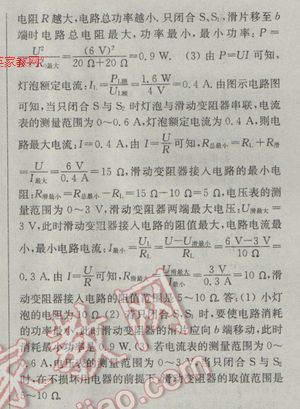 电阻R越大,电路总功率越小.只闭合S、S₁,滑片移至b
端时电路总电阻最大,功率最小,最小功率:P=
U²/(R+R滑最大)=(6 V)²/(20 Ω+20 Ω)=0.9 W. (3)由P=UI可知,
灯泡额定电流:I_L=P_L额/U_L额=1.6 W/4 V=0.4 A.由图示电路图
可知,当只闭合S与S₂时灯泡与滑动变阻器串联,电流
表的测量范围为0~0.6 A,灯泡额定电流为0.4 A,则电
路最大电流:I=0.4 A,由I=U/R可知,R总最小=R_L+R滑
=U/I最大=6 V/0.4 A=15 Ω,滑动变阻器接入电路的最小电
阻:R滑最小=R总最小-R_L=15 Ω-10 Ω=5 Ω,电压表的测
量范围为0~3 V,滑动变阻器两端最大电压:U滑最大=
3 V,此时滑动变阻器接入电路的阻值最大,电路电流最
小,最小电路电流:I最小=U_L/R_L=(U-U滑最大)/R_L=(6 V-3 V)/10 Ω=
0.3 A.由I=U/R可知,R滑最大=U滑最大/I最小=3 V/0.3 A=10 Ω,滑
动变阻器接入电路的阻值范围是5~10 Ω.答:(1)小灯
泡的电阻是10 Ω.(2)若只闭合S、S₁时,要使电路消耗
的功率最小,此时滑动变阻器的滑片应向b端移动,此时
消耗最小功率是0.9 W.(3)若电流表的测量范围为0~
0.6 A,电压表的测量范围为0~3 V,当只闭合S与S₂
时,在不损坏用电器的前提下,滑动变阻器的取值范围是
5~10 Ω.